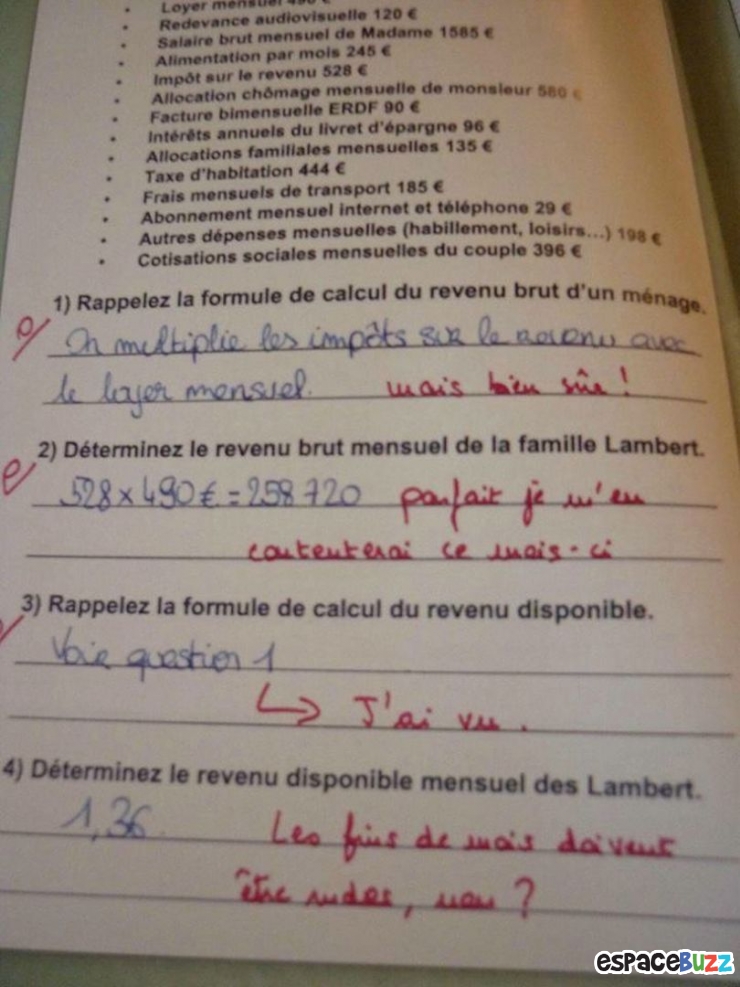 Loyer mensuel 490 €
• Redevance audiovisuelle 120 €
• Salaire brut mensuel de Madame 1585 €
• Alimentation par mois 245 €
• Impôt sur le revenu 528 €
• Allocation chômage mensuelle de monsieur 580 €
• Facture bimensuelle ERDF 90 €
• Intérêts annuels du livret d'épargne 96 €
• Allocations familiales mensuelles 135 €
• Taxe d'habitation 444 €
• Frais mensuels de transport 185 €
• Abonnement mensuel internet et téléphone 29 €
• Autres dépenses mensuelles (habillement, loisirs...) 198 €
• Cotisations sociales mensuelles du couple 396 €
1) Rappelez la formule de calcul du revenu brut d'un ménage.
On multiplie les impôts sur le revenu avec
le loyer mensuel. mais bien sûr !
2) Déterminez le revenu brut mensuel de la famille Lambert.
528 x 490 € = 258 720 parfait je m'en
contenterai ce mois-ci
3) Rappelez la formule de calcul du revenu disponible.
Voie question 1
↳ J'ai vu.
4) Déterminez le revenu disponible mensuel des Lambert.
1,36 Les fins de mois doivent
être rudes, non ?
eSPACeBUZZ